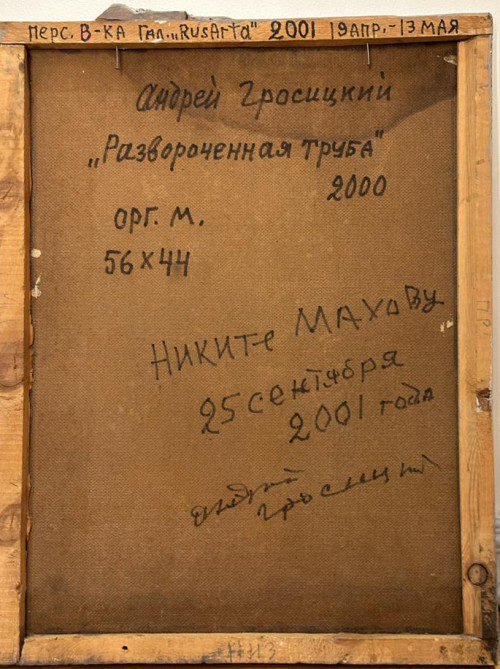 перс. В-ка Гал. „RusArta" 2001 19 апр.-13 мая
Андрей Гросицкий
„Развороченная труба"
2000
орг. м.
56х44
Никите Махову
25 сентября
2001 года
Андрей
Гросицкий